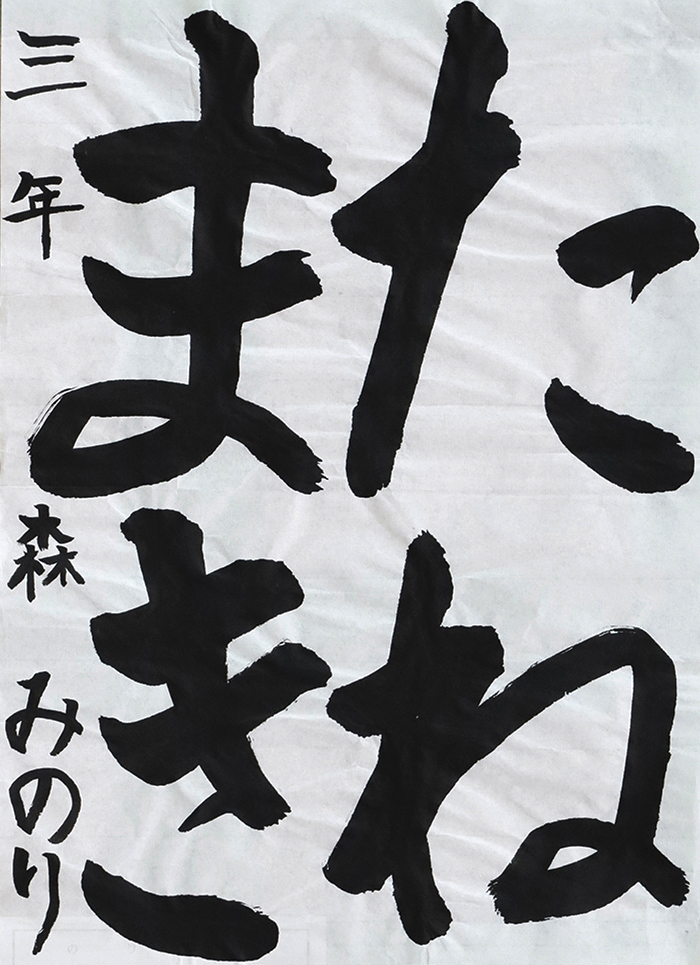 たね
まき
三年 森 みのり